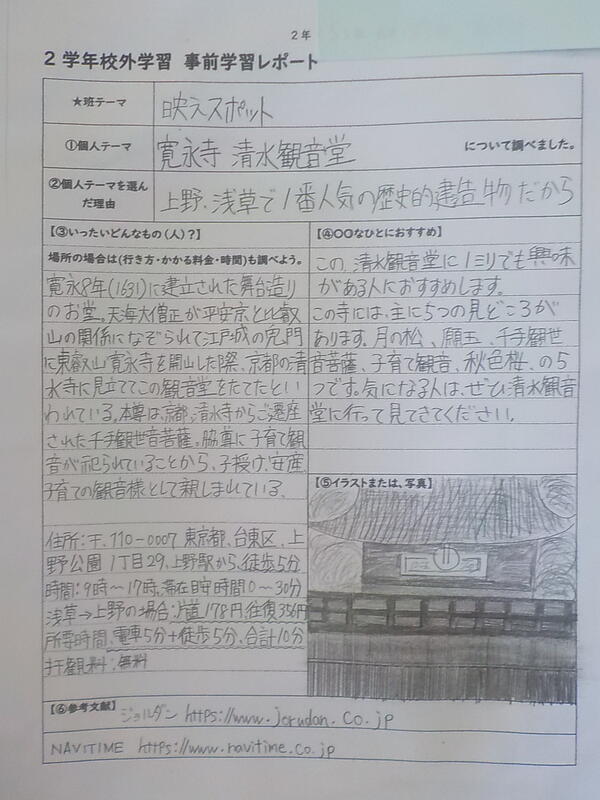 2年
2学年校外学習 事前学習レポート
★班テーマ
映えスポット
①個人テーマ
寛永寺 清水観音堂
について調べました。
②個人テーマを選んだ理由
上野、浅草で1番人気の歴史的建造物だから
【③いったいどんなもの(人)?】
場所の場合は(行き方・かかる料金・時間)も調べよう。
寛永8年(1631)に建立された舞台造り
のお堂。天海大僧正が平安京と比叡
山の関係になぞられて江戸城の鬼門
に東叡山寛永寺を開山した際、京都の清
水寺に見立ててこの観音堂をたてたとい
われている。本尊は、京都、清水寺からご遷座
された千手観世音菩薩。脇尊に子育て観
音が祀られていることから、子授け、安産、
子育ての観音様として親しまれている、
住所:〒、110-0007 東京都、台東区、上
野公園 1丁目29、上野駅から、徒歩5分
時間:9時〜17時、滞在目安時間0〜30分
浅草→上野の場合:片道178円、往復356円
所要時間、電車5分+徒歩5分、合計10分
拝観料:無料
【④〇〇なひとにおすすめ】
この、清水観音堂に1ミリでも興味
がある人におすすめします。
この寺には、主に5つの見どころが
あります。月の松、願玉、千手観世
音菩薩、子育て観音、秋色桜、の5
つです。気になる人は、ぜひ清水観音
堂に行って見てきてください。
【⑤イラストまたは、写真】
【⑥参考文献】
ジョルダン https://www.jorudan.co.jp
NAVITIME https://www.navitime.co.jp